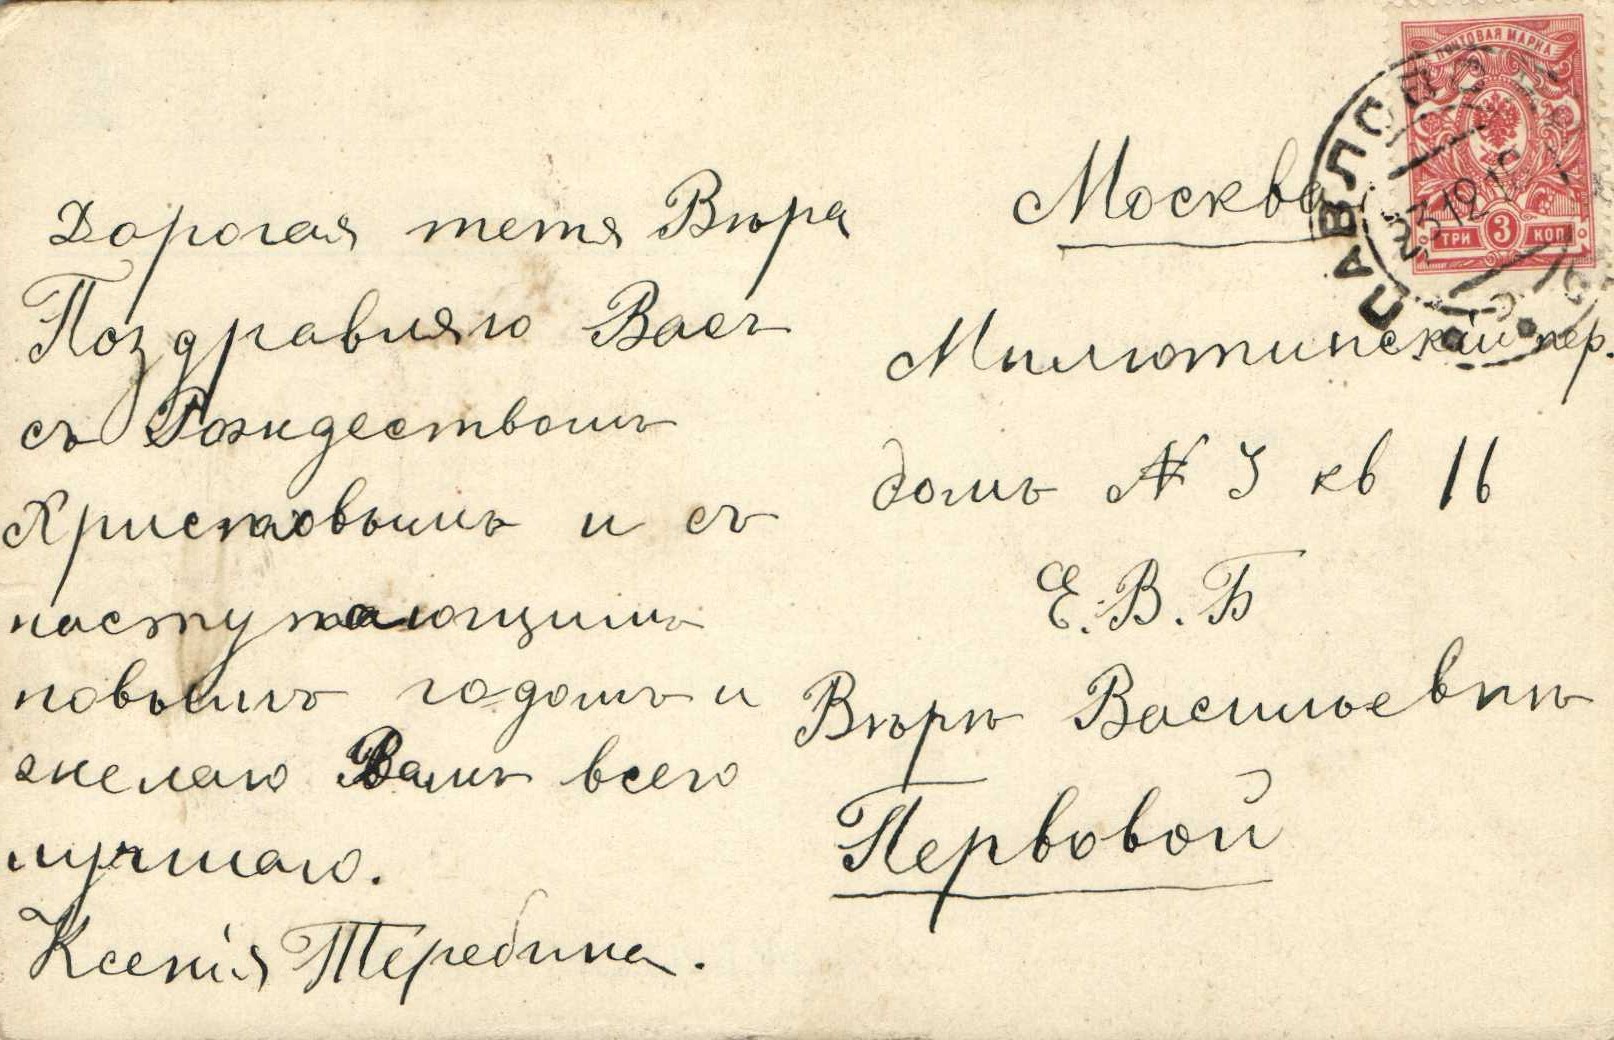 Дорогая тетя Вѣра
Поздравляю Васъ
съ Рождествомъ
Христовымъ и съ
наступающимъ
новымъ годомъ и
желаю Вамъ всего
лучшаго.
Ксенія Теребина.
ПОЧТОВАЯ МАРКА
ТРИ 3 КОП
23 12 1
Москва
Милютинскій пер.
домъ № 3 кв 16
Е. В. Б
Вѣрѣ Васильевнѣ
Первовой